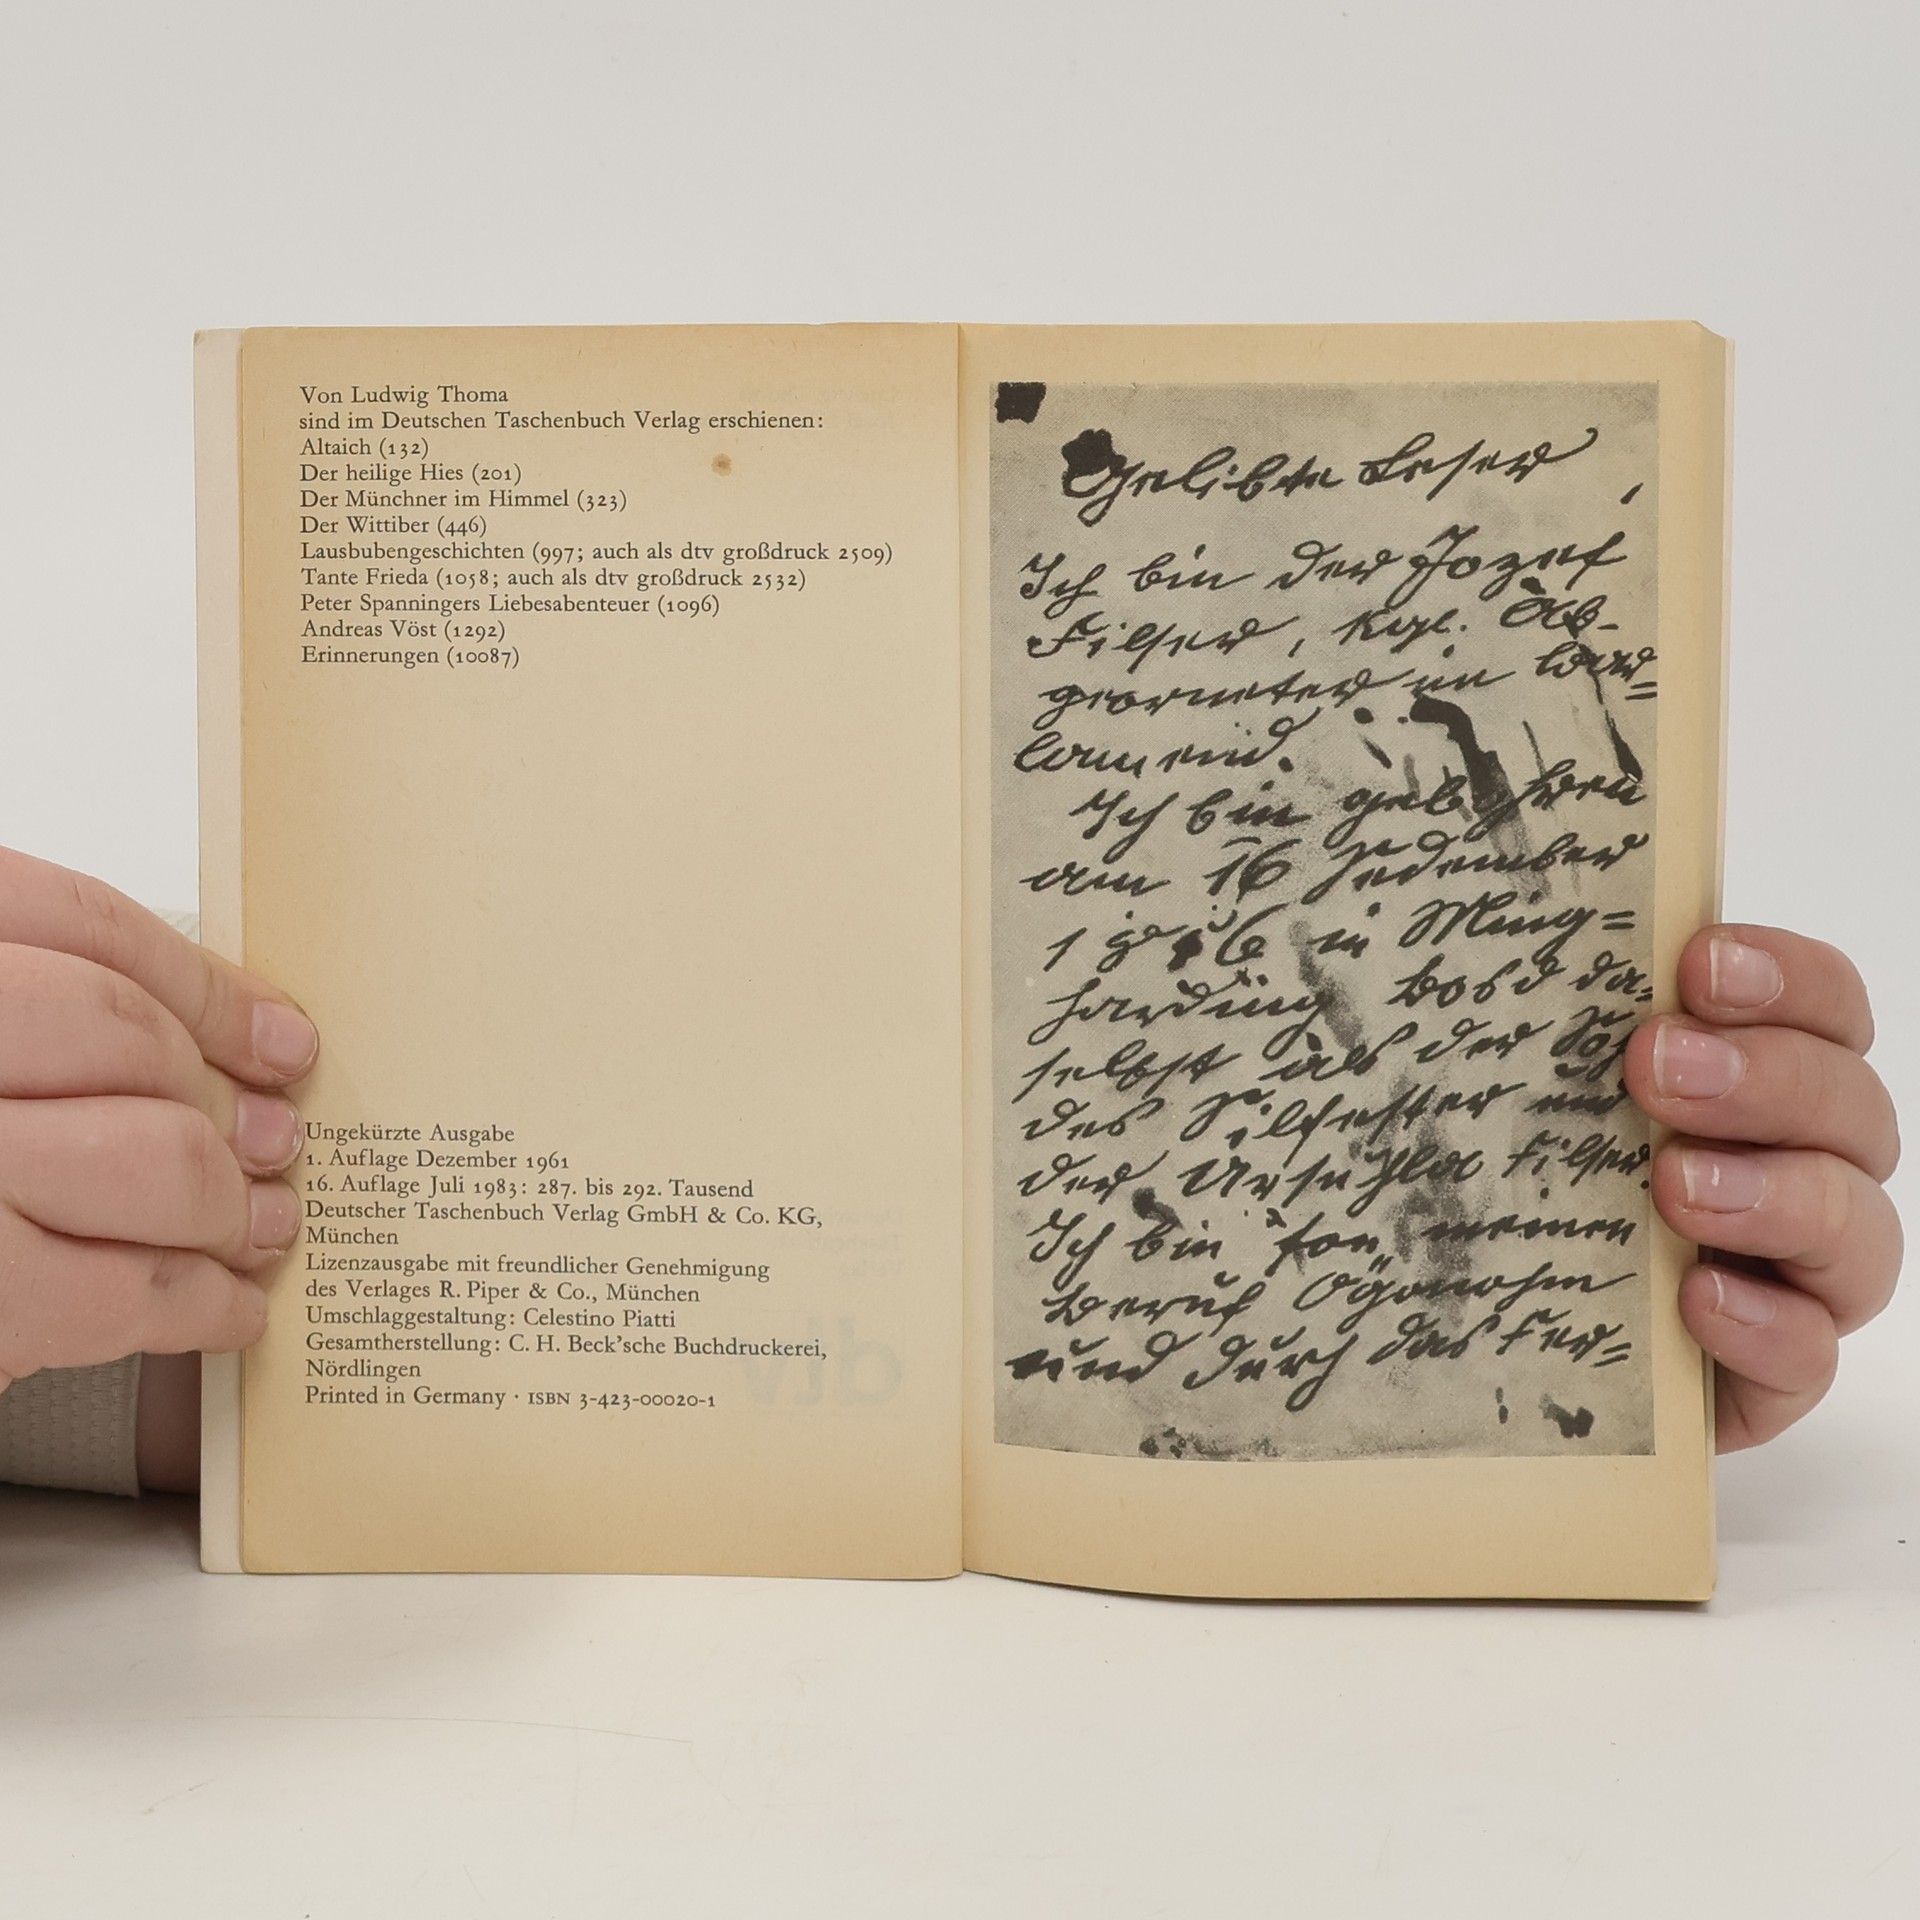 Von Ludwig Thoma
sind im Deutschen Taschenbuch Verlag erschienen:
Altaich (132)
Der heilige Hies (201)
Der Münchner im Himmel (323)
Der Wittiber (446)
Lausbubengeschichten (997; auch als dtv großdruck 2509)
Tante Frieda (1058; auch als dtv großdruck 2532)
Peter Spanningers Liebesabenteuer (1096)
Andreas Vöst (1292)
Erinnerungen (10087)
Ungekürzte Ausgabe
1. Auflage Dezember 1961
16. Auflage Juli 1983: 287. bis 292. Tausend
Deutscher Taschenbuch Verlag GmbH & Co. KG,
München
Lizenzausgabe mit freundlicher Genehmigung
des Verlages R. Piper & Co., München
Umschlaggestaltung: Celestino Piatti
Gesamtherstellung: C. H. Beck'sche Buchdruckerei,
Nördlingen
Printed in Germany · ISBN 3-423-00020-1
Gelibte Leser,
Ich bin der Jozef
Filser, kgl. Ab-
georneter im bar=
lamend.
Ich bin gebohren
am 16 Sedember
in Ming=
harding bosd da=
selbst als der
des Silfester und
der Ursuhla Filser.
Ich bin fon meinen
beruf Ögonohm
und durch das Fer=